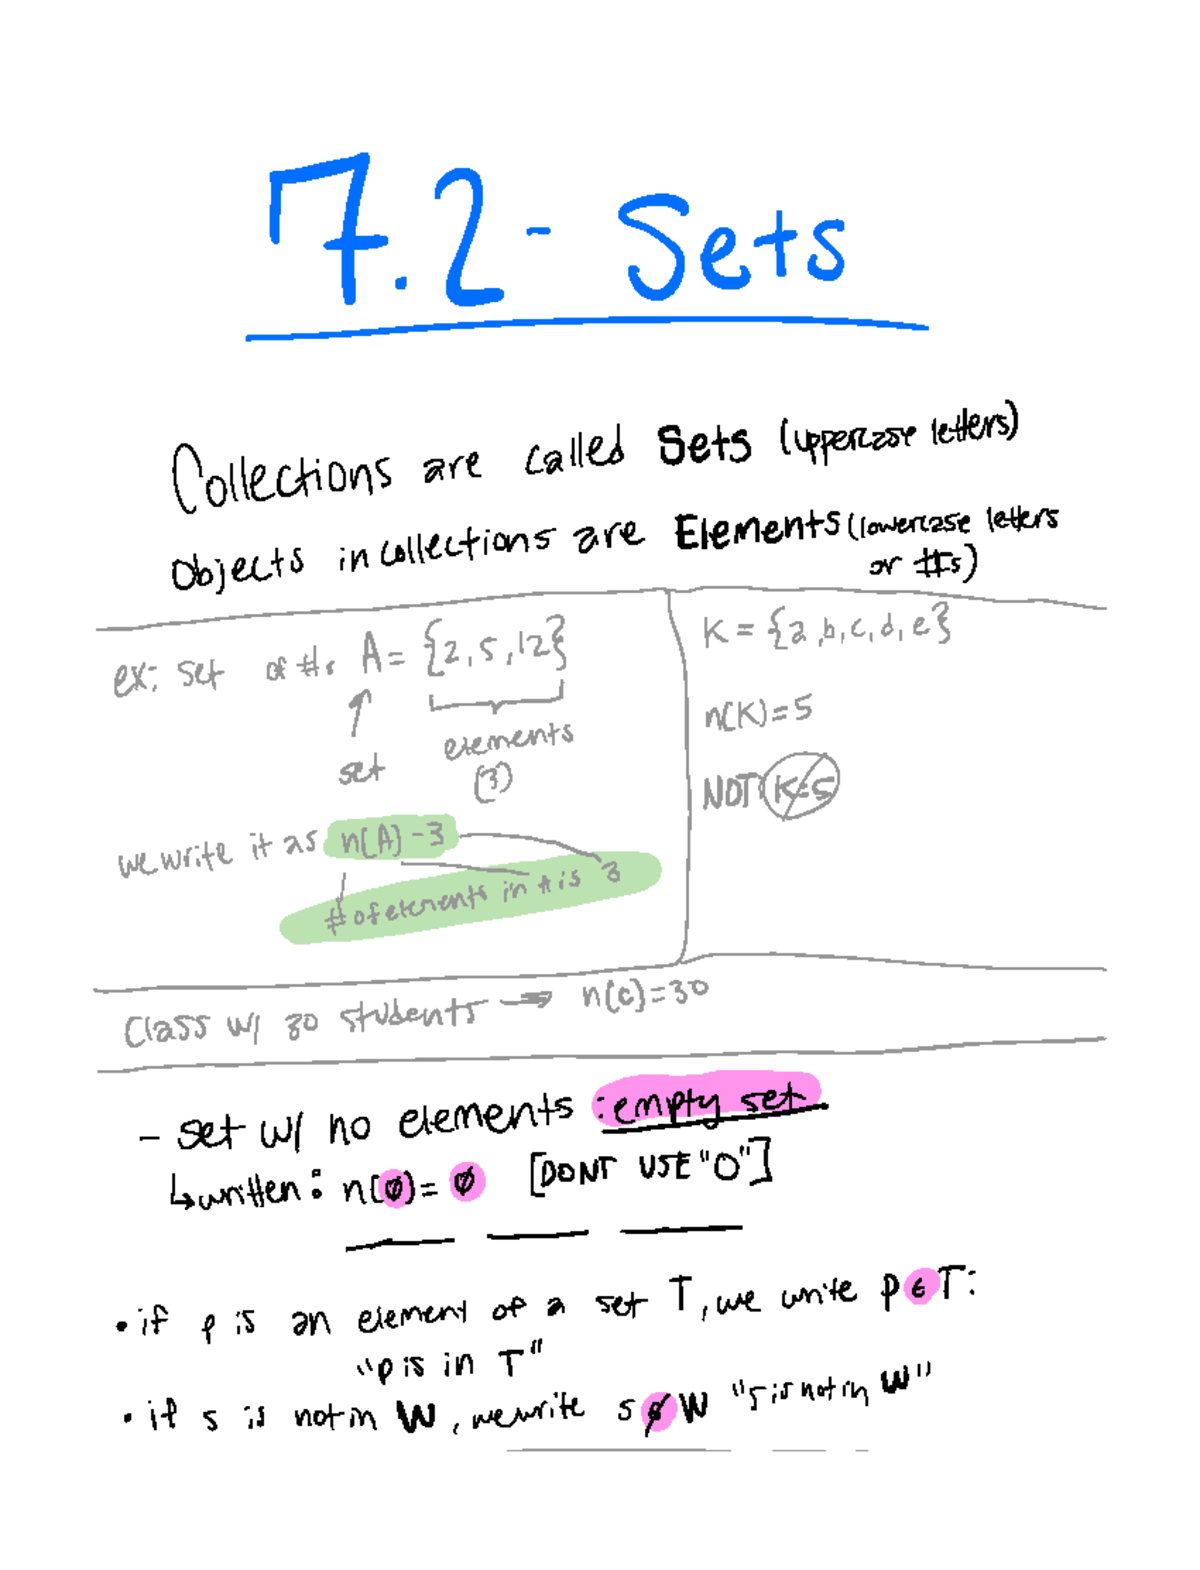 7.2 - Sets
Collections are called Sets (uppercase letters)
Objects in collections are Elements (lowercase letters
or #s)
ex: set of #s A = {2, 5, 12}
set
elements
(3)
we write it as n(A) - 3
# of elements in A is 3
K = {a, b, c, d, e}
n(K) = 5
NOT K=5
Class w/ 30 students → n(c) = 30
- set w/ no elements : empty set
↳ written: n(∅) = ∅ [DONT USE "0"]
• if p is an element of a set T, we write p ∈ T:
"p is in T"
• if s is not in W, we write s ∉ W "s is not in W"